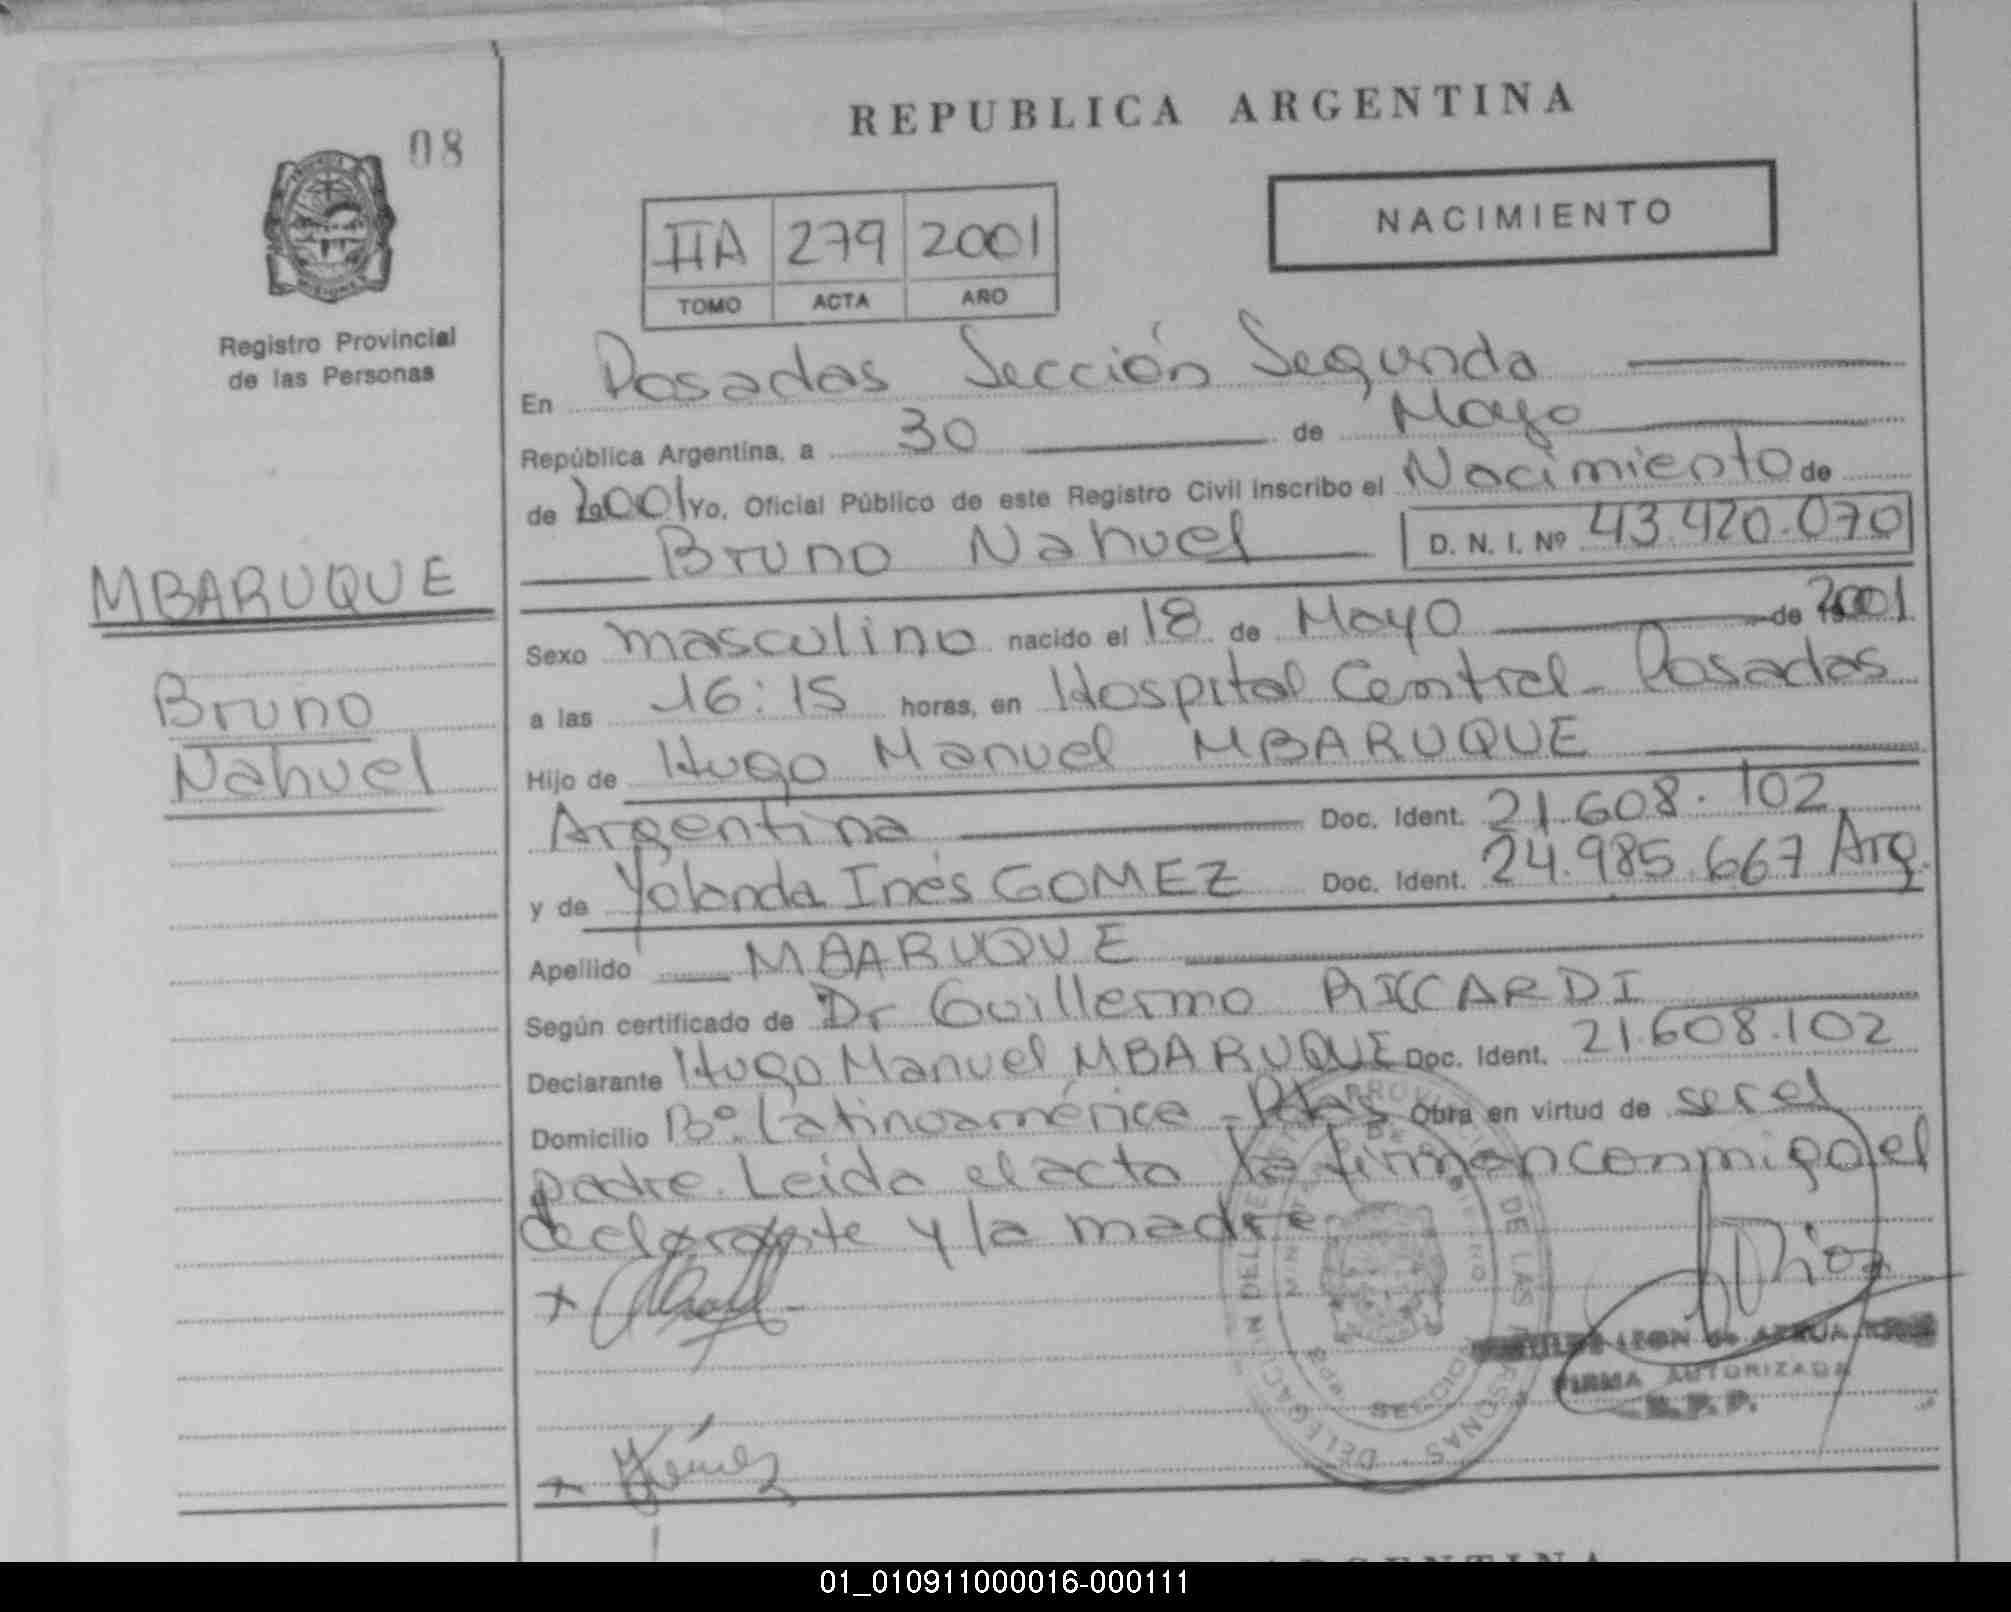 REPUBLICA ARGENTINA
08
NACIMIENTO
IIA 279 2001
TOMO ACTA AÑO
Registro Provincial
de las Personas
En Posadas Sección Segunda
República Argentina, a 30 de Mayo
de 2001 Yo, Oficial Público de este Registro Civil inscribo el Nacimiento de
Bruno Nahuel D. N. I. Nº 43.420.070
MBARUQUE
Bruno
Nahuel
Sexo masculino nacido el 18 de Mayo de 2001
a las 16:15 horas, en Hospital Central - Posadas
Hijo de Hugo Manuel MBARUQUE
Argentina Doc. Ident. 21.608.102
y de Yolanda Inés GOMEZ Doc. Ident. 24.985.667 Arg.
Apellido MBARUQUE
Según certificado de Dr Guillermo RICCARDI
Declarante Hugo Manuel MBARUQUE Doc. Ident. 21.608.102
Domicilio Bº. Latinoamérica - Pdas Obra en virtud de ser el
padre. Leida el acta la firman conmigo el
declarante y la madre.
LEON de
FIRMA AUTORIZADA
R. P. P.
ARGENTINA
01_010911000016-000111